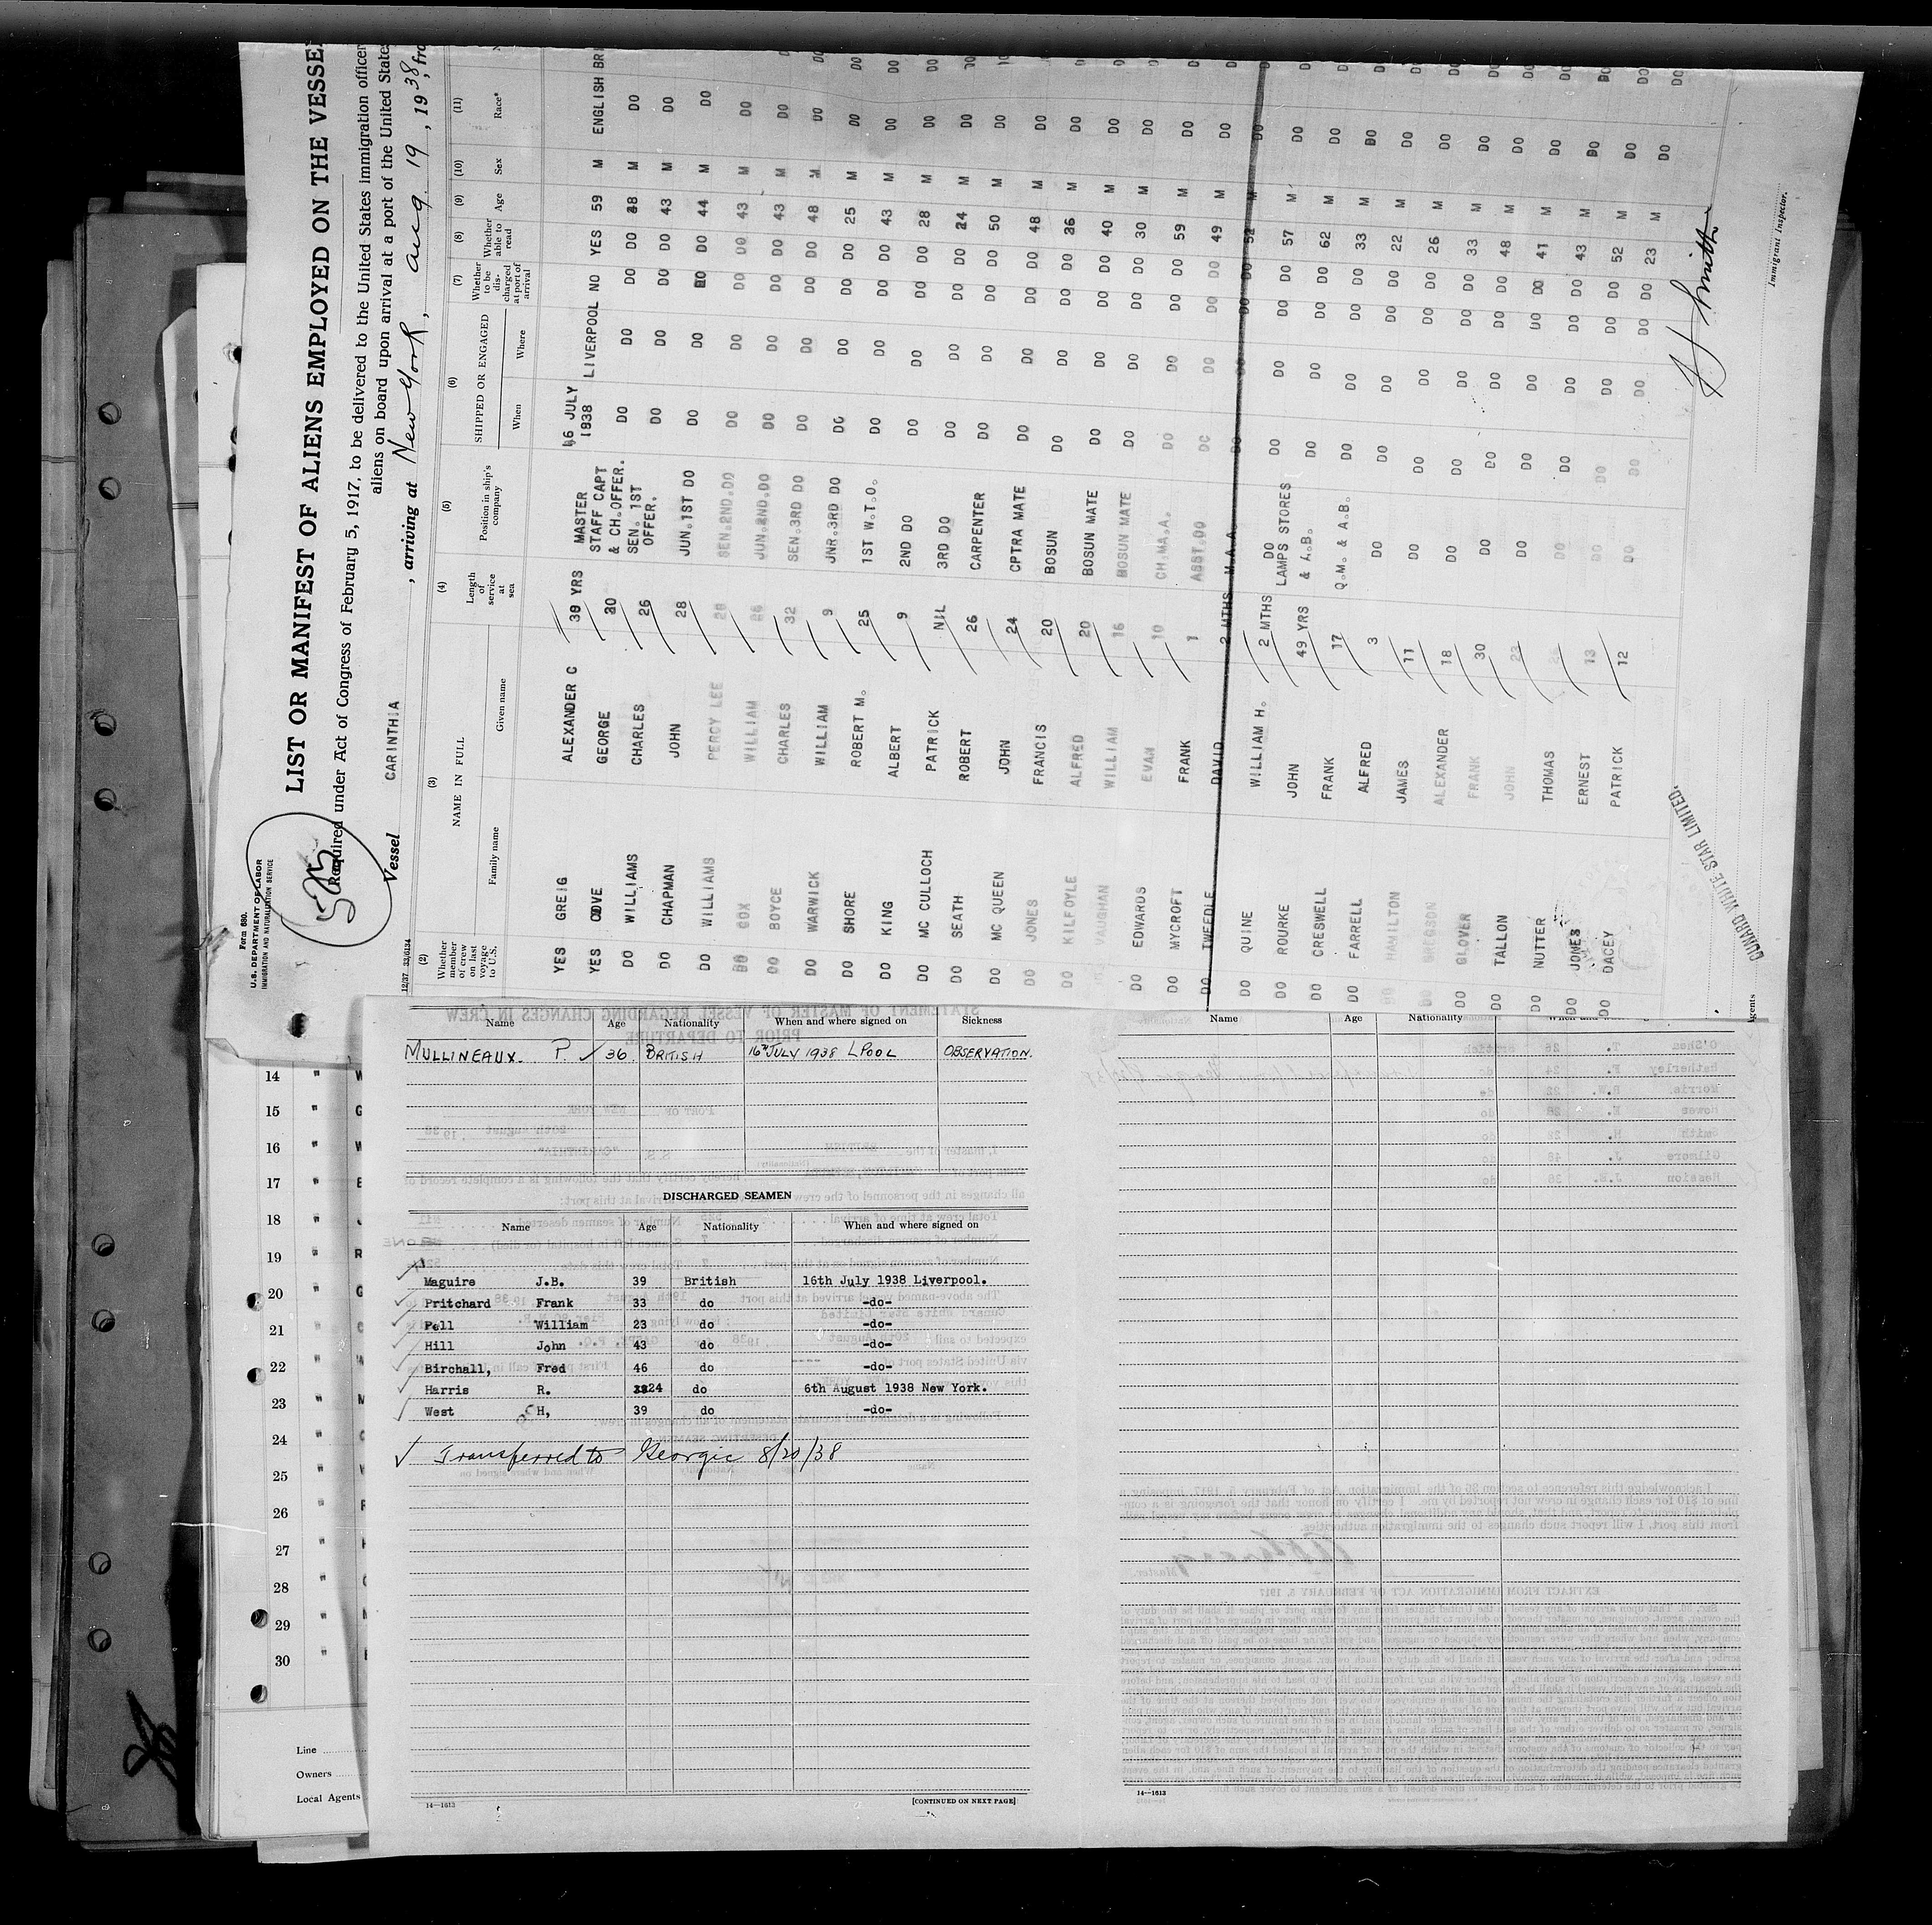 Form 680.
U.S. DEPARTMENT OF LABOR
IMMIGRATION AND NATURALIZATION SERVICE
LIST OR MANIFEST OF ALIENS EMPLOYED ON THE VESSEL
Required under Act of Congress of February 5, 1917, to be delivered to the United States immigration officer
aliens on board upon arrival at a port of the United States
Vessel CARINTHIA , arriving at New York, Aug. 19, 1938, fro
12/37 33/6134
(2) (3) (4) (5) (6) (7) (8) (9) (10) (11)
Whether member of crew on last voyage to U.S. NAME IN FULL Family name Given name Length of service at sea Position in ship's company SHIPPED OR ENGAGED When Where Whether to be discharged at port of arrival Whether able to read Age Sex Race*
YES GREIG ALEXANDER C 39 YRS MASTER 16 JULY 1938 LIVERPOOL NO YES 59 M ENGLISH BRI
YES COVE GEORGE 30 STAFF CAPT & CH.OFFER. DO DO DO DO 48 M DO
DO WILLIAMS CHARLES 26 SEN. 1ST OFFER. DO DO DO DO 43 M DO
DO CHAPMAN JOHN 28 JUN.1ST DO DO DO DO DO 44 M DO
DO WILLIAMS PERCY LEE 28 SEN.2ND.DO DO DO DO DO 43 M DO
DO COX WILLIAM 26 JUN.2ND.DO DO DO DO DO 43 M DO
DO BOYCE CHARLES 32 SEN.3RD DO DO DO DO DO 48 M DO
DO WARWICK WILLIAM 9 JNR.3RD DO DO DO DO DO 25 M DO
DO SHORE ROBERT M. 25 1ST W.T.O. DO DO DO DO 43 M DO
DO KING ALBERT 9 2ND DO DO DO DO DO 28 M DO
DO MC CULLOCH PATRICK NIL 3RD DO DO DO DO DO 24 M DO
DO SEATH ROBERT 26 CARPENTER DO DO DO DO 50 M DO
DO MC QUEEN JOHN 24 CPTRA MATE DO DO DO DO 48 M DO
DO JONES FRANCIS 20 BOSUN DO DO DO DO 36 M DO
DO KILFOYLE ALFRED 20 BOSUN MATE DO DO DO DO 40 M DO
VAUGHAN WILLIAM 16 BOSUN MATE DO DO DO DO 30 M DO
DO EDWARDS EVAN 10 CH.MA.A. DO DO DO DO 59 M DO
DO MYCROFT FRANK 1 ASST.DO DO DO DO DO 49 M DO
DO TWEEDLE DAVID 2 MTHS M.A.A. DO DO DO DO 52 M DO
DO QUINE WILLIAM H. 2 MTHS DO DO DO DO DO 57 M DO
DO ROURKE JOHN 49 YRS LAMPS STORES & A.B. DO DO DO DO 62 M DO
DO CRESWELL FRANK 17 Q.M. & A.B. DO DO DO DO 33 M DO
DO FARRELL ALFRED 3 DO DO DO DO DO 22 M DO
DO HAMILTON JAMES 11 DO DO DO DO DO 26 M DO
DO ALEXANDER 18 DO DO DO DO DO 33 M DO
DO GLOVER FRANK 30 DO DO DO DO DO 48 M DO
DO TALLON JOHN 23 DO DO DO DO DO 41 M DO
DO NUTTER THOMAS DO DO DO DO DO 43 M DO
DO JONES ERNEST 13 DO DO DO DO DO 52 M DO
DO DACEY PATRICK 12 DO DO DO DO DO 23 M DO
CUNARD WHITE STAR LIMITED.
Agents
Immigrant Inspector.
Name Age Nationality When and where signed on Sickness
MULLINEAUX. P. 36. BRITISH 16TH JULY 1938 LPOOL OBSERVATION.
DISCHARGED SEAMEN
Name Age Nationality When and where signed on
Maguire J.B. 39 British 16th July 1938 Liverpool.
Pritchard Frank 33 do -do-
Pell William 23 do -do-
Hill John 43 do -do-
Birchall, Fred 46 do -do-
Harris R. 24 do 6th August 1938 New York.
West H, 39 do -do-
Transferred to Georgic 8/20/38
14—1613
[CONTINUED ON NEXT PAGE]
Name Age Nationality
14—1613
14 "
15 "
16 "
17 "
18 "
19 "
20 "
21 "
22 "
23 "
24 "
25 "
26 "
27 "
28 "
29 "
30 "
Line
Owners
Local Agents